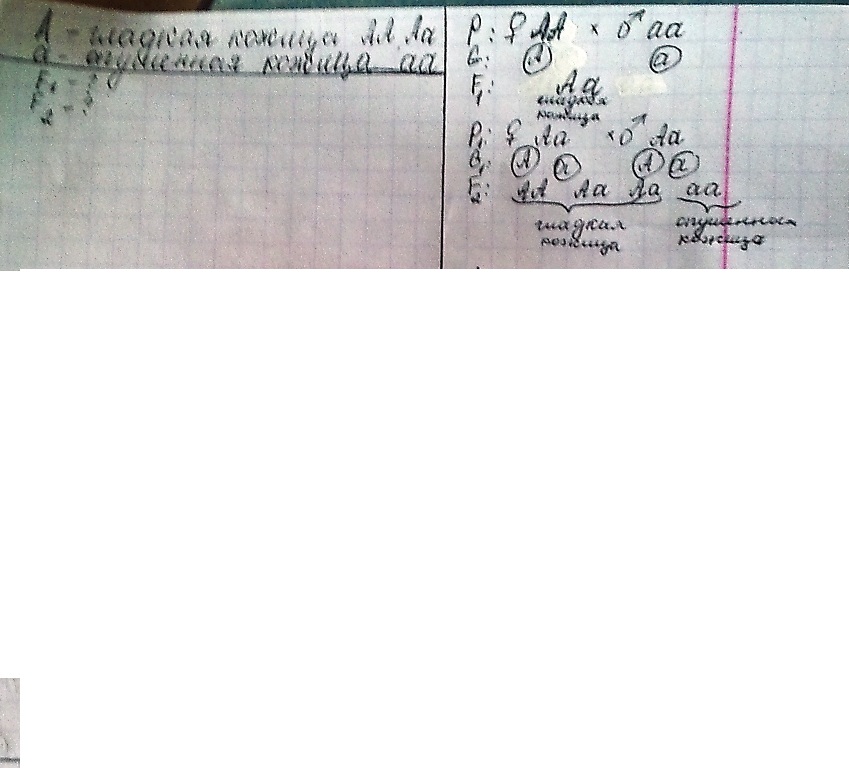 A - гладкая кожица AA, Aa
a - опушенная кожица aa
F₁ - ?
F₂ - ?
P: ♀ AA × ♂ aa
G: A a
F₁: Aa
гладкая
кожица
P₁: ♀ Aa × ♂ Aa
G₁: A a A a
F₂: AA Aa Aa aa
гладкая кожица
опушенная кожица